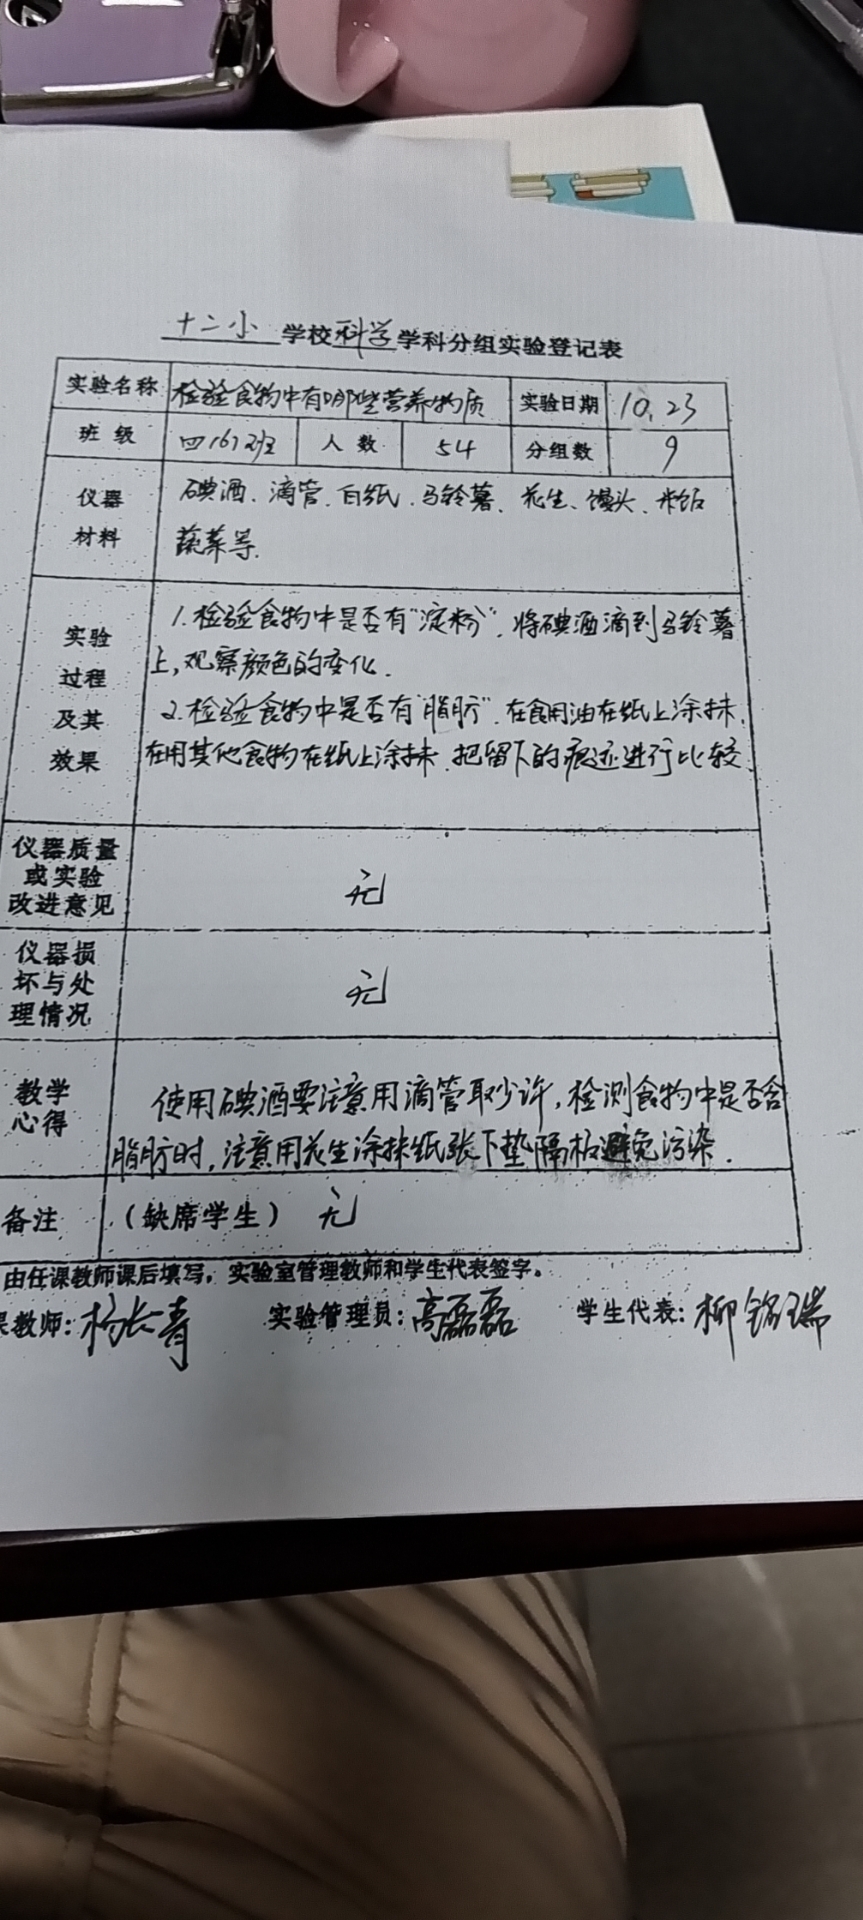 十二小 学校 科学 学科分组实验登记表
实验名称 检验食物中有哪些营养物质 实验日期 10.23
班级 四(6)班 人数 54 分组数 9
仪器 碘酒、滴管、白纸、马铃薯、花生、馒头、米饭
材料 蔬菜等.
实验 1.检验食物中是否有“淀粉”.将碘酒滴到马铃薯
过程 上,观察颜色的变化.
及其 2.检验食物中是否有“脂肪”.在食用油在纸上涂抹.
效果 在用其他食物在纸上涂抹.把留下的痕迹进行比较
仪器质量
或实验
改进意见 无
仪器损
坏与处 无
理情况
教学 使用碘酒要注意用滴管取少许,检测食物中是否含
心得 脂肪时,注意用花生涂抹纸张下垫隔板避免污染.
备注 (缺席学生) 无
由任课教师课后填写,实验室管理教师和学生代表签字。
课教师: 杨长青 实验管理员: 高磊磊 学生代表: 柳铭瑞